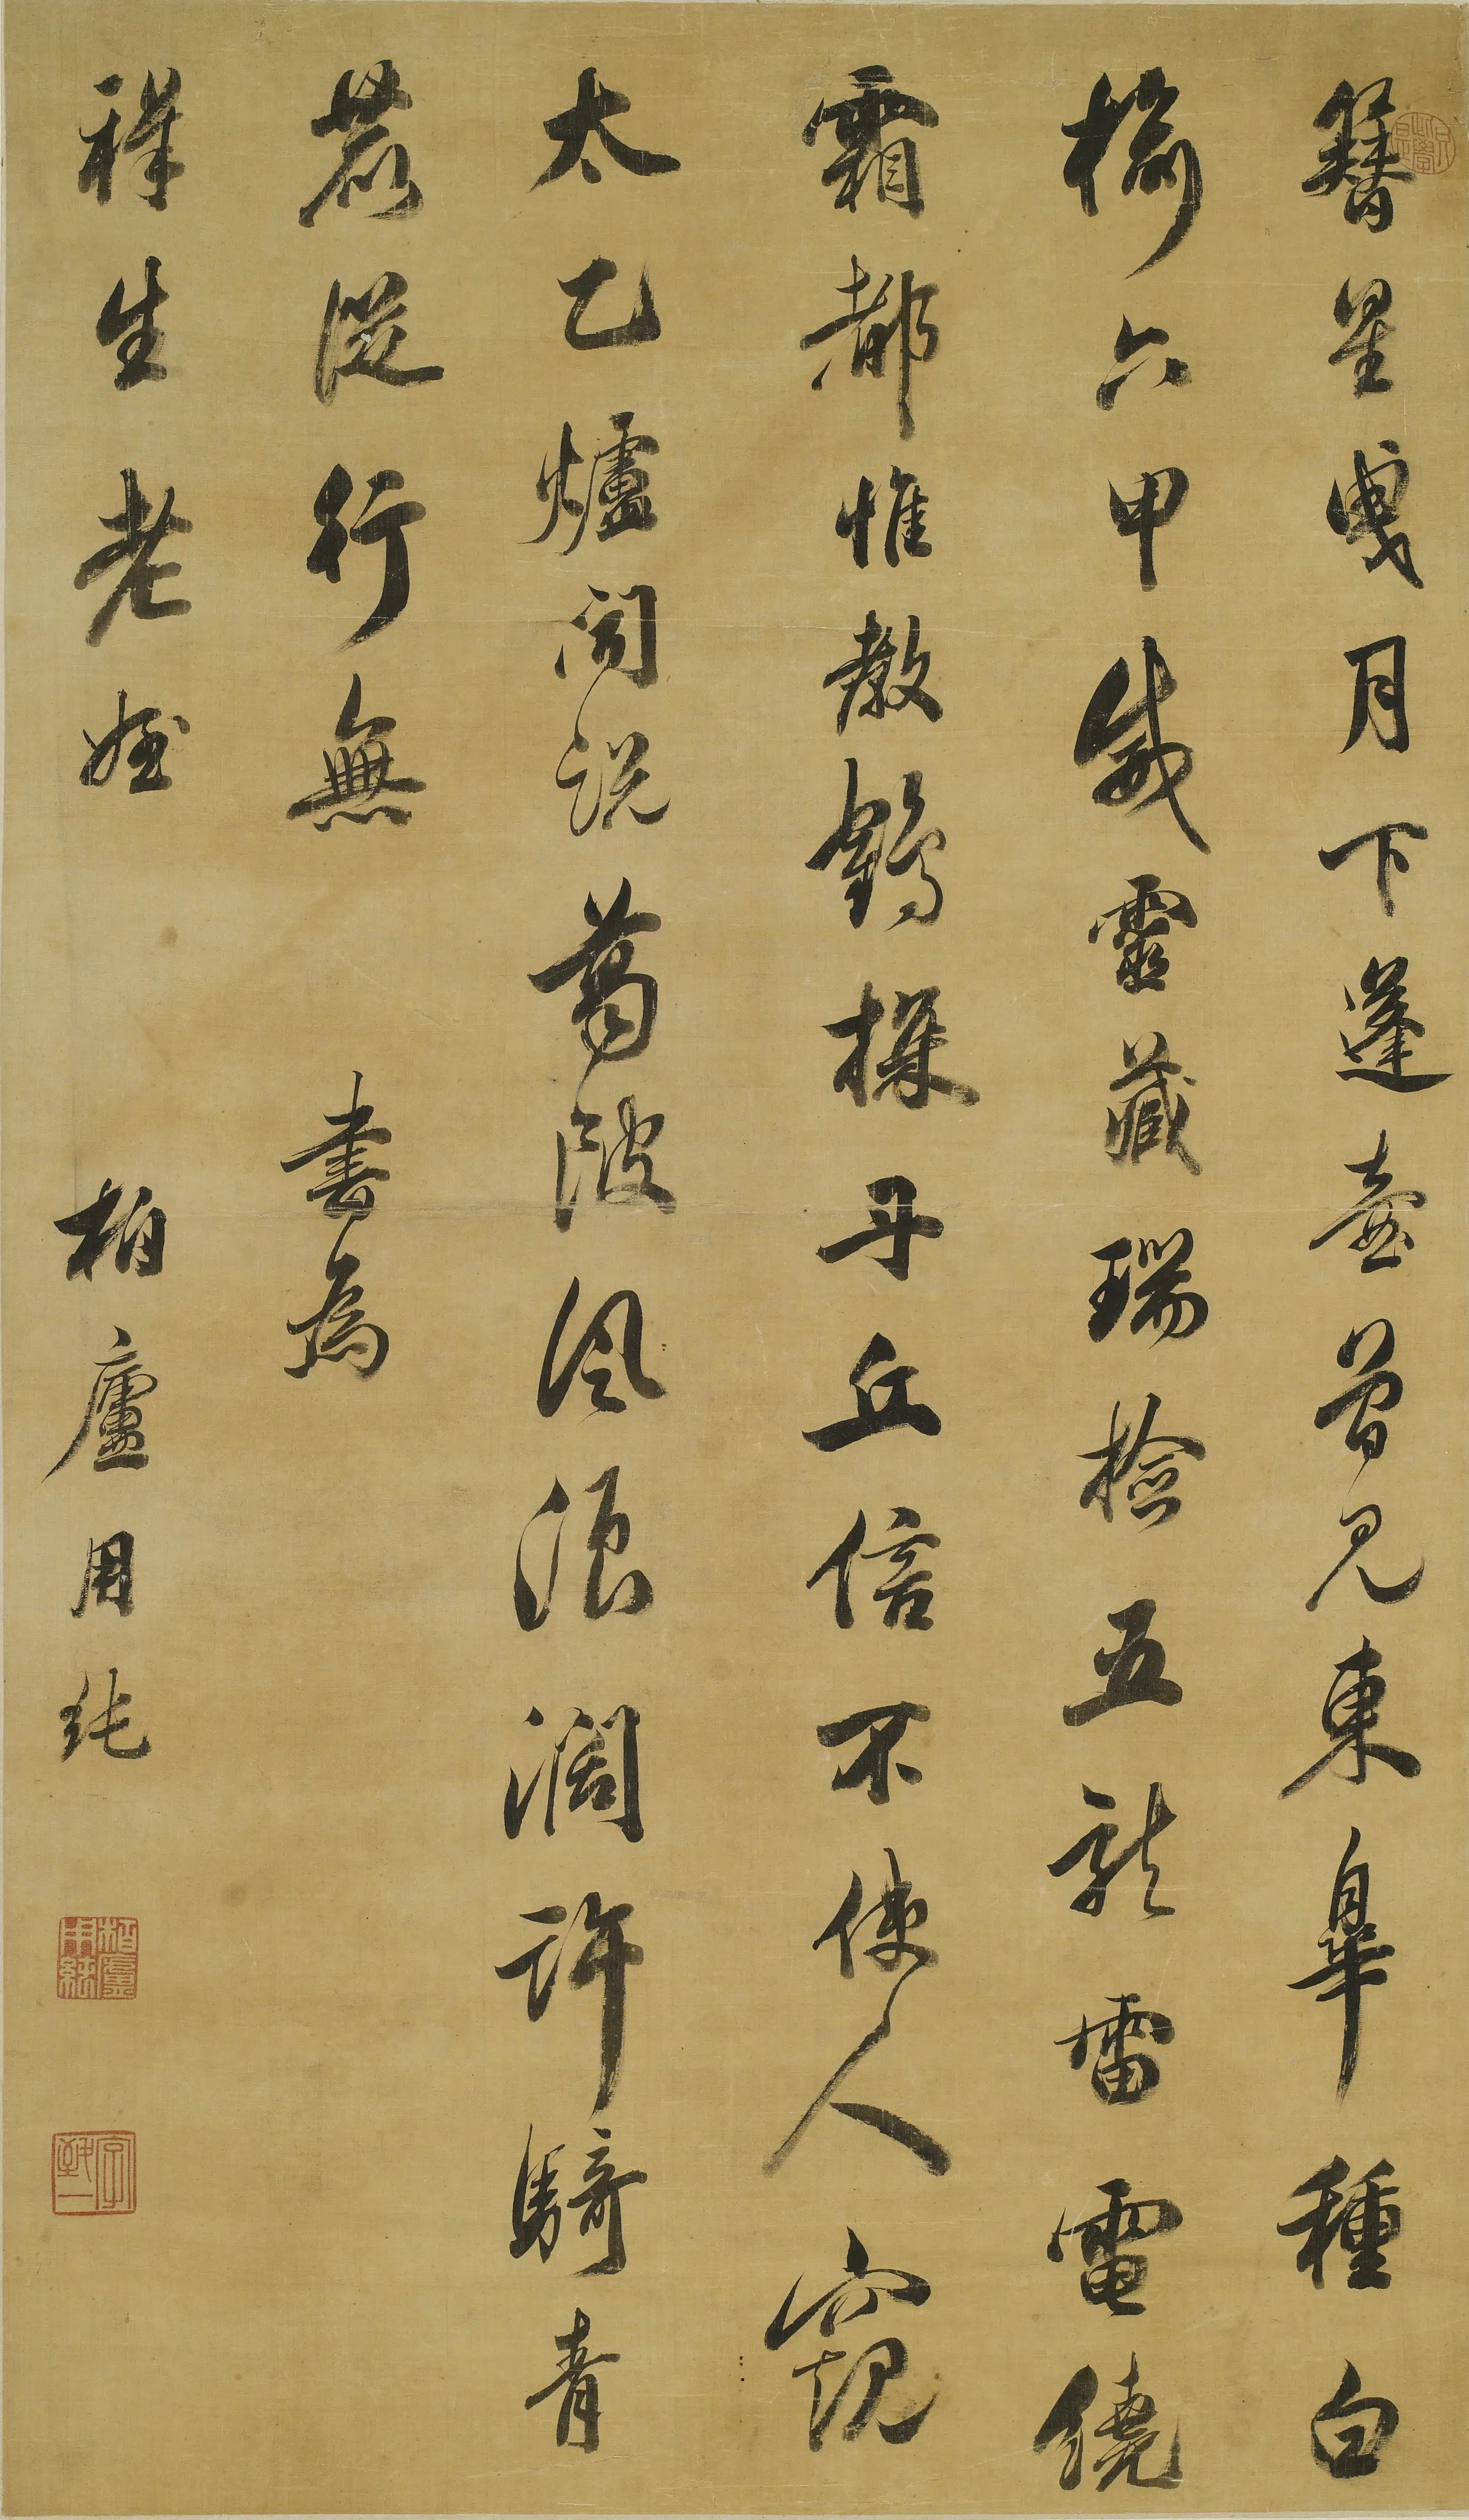 簪星曳月下蓬壺曾見東皋種白
榆六甲威靈藏瑞檢五龍雷電繞
霜都惟教鶴探丹丘信不使人窺
太乙爐聞說葛陂風浪闊許騎青
鹿從行無 書為
生老姪 柏廬用純
柏廬用純
字致一